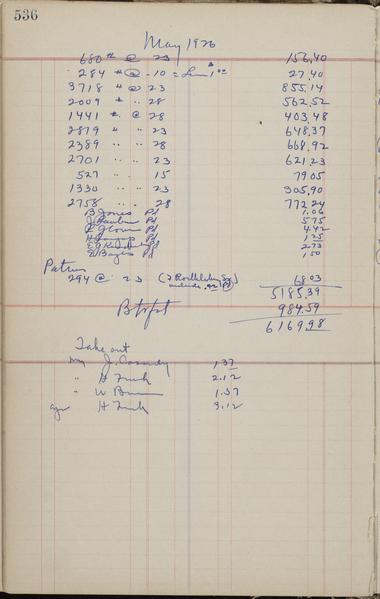 536
May 1926
680 # @ 23 156.40
284 " @ .10 = Less $1.00 27.40
3718 " @ 23 855.14
2009 " " 28 562.52
1441 " @ 28 403.48
2819 " " 23 648.37
2389 " " 28 668.92
2701 " " 23 621.23
527 " " 15 79.05
1330 " " 23 305.90
2758 " " 28 772.24
B Jones Pd 1.06
Pd 5.75
Pd 4.42
Pd 1.25
Pd 2.73
Pd 1.50
294 @ 23 68.03
5185.39
984.59
6169.98
Take out
J. Cassidy 1.37
" H 2.12
" W 1.37
H 3.12